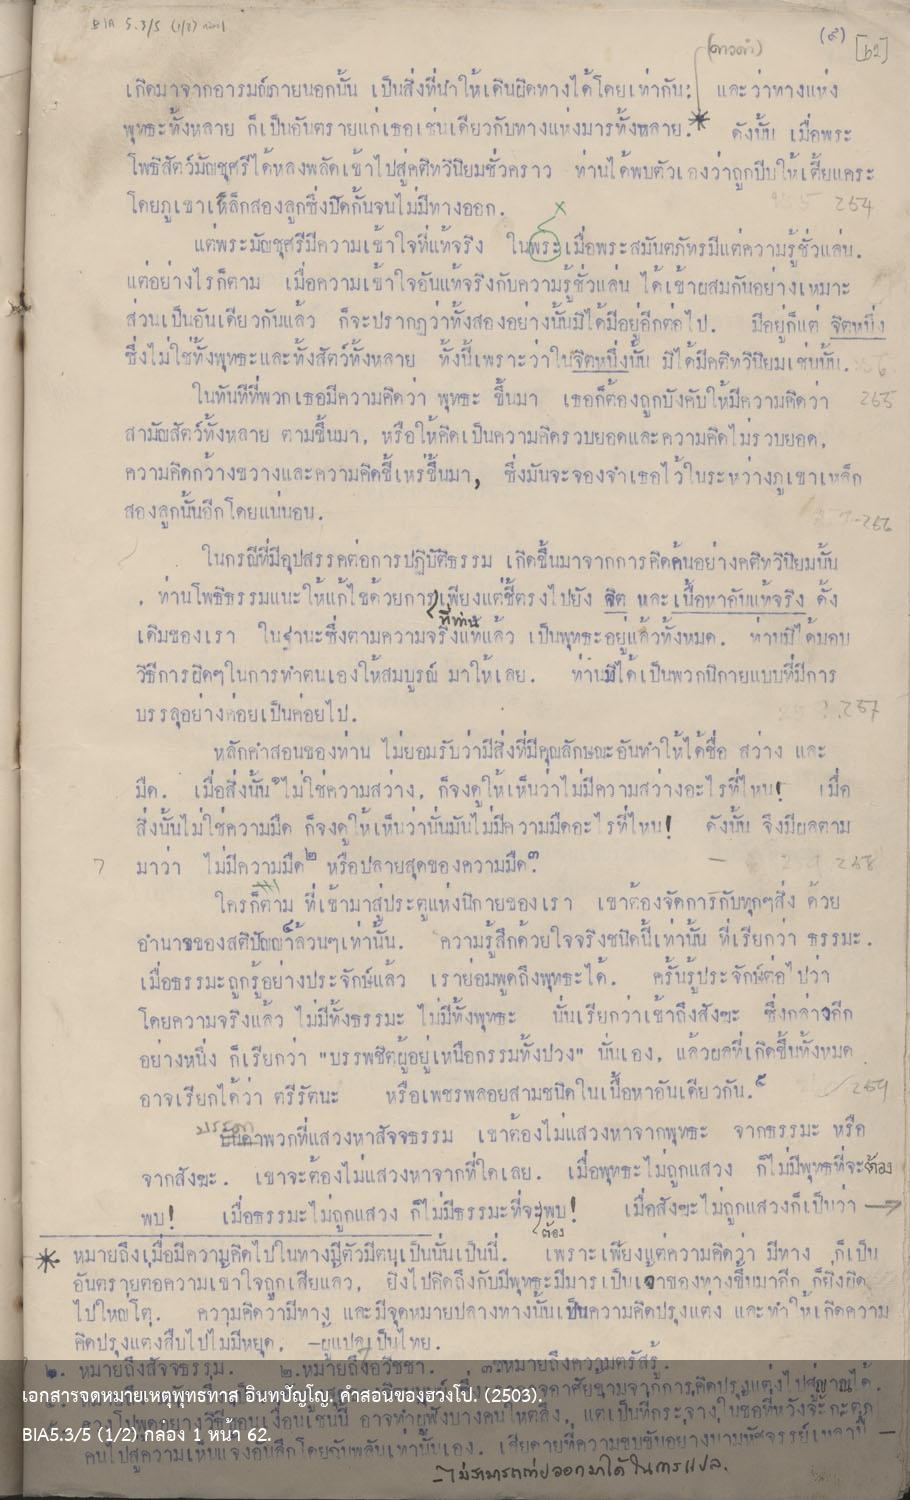 BIA 5.3/5 (1/2) กล่อง 1
(๙) [62]
(ดาวดำ)
เกิดมาจากอารมณ์ภายนอกนั้น เป็นสิ่งที่นำให้เดินผิดทางได้โดยเท่ากัน; และว่าทางแห่ง
พุทธะทั้งหลาย ก็เป็นอันตรายแก่เธอเช่นเดียวกับทางแห่งมารทั้งหลาย.* ดังนั้น เมื่อพระ
โพธิสัตว์มัญชุศรีได้หลงพลัดเข้าไปสู่คติทวินิยมชั่วคราว ท่านได้พบตัวเองว่าถูกบีบให้เตี้ยแคระ
โดยภูเขาเหล็กสองลูกซึ่งปิดกั้นจนไม่มีทางออก. 254
x
แต่พระมัญชุศรีมีความเข้าใจที่แท้จริง ในพระเมื่อพระสมันตภัทรมีแต่ความรู้ชั่วแล่น.
แต่อย่างไรก็ตาม เมื่อความเข้าใจอันแท้จริงกับความรู้ชั่วแล่น ได้เข้าผสมกันอย่างเหมาะ
ส่วนเป็นอันเดียวกันแล้ว ก็จะปรากฏว่าทั้งสองอย่างนั้นมิได้มีอยู่อีกต่อไป. มีอยู่ก็แต่ จิตหนึ่ง
ซึ่งไม่ใช่ทั้งพุทธะและทั้งสัตว์ทั้งหลาย ทั้งนี้เพราะว่าในจิตหนึ่งนั้น มิได้มีคติทวินิยมเช่นนั้น.
ในทันทีที่พวกเธอมีความคิดว่า พุทธะ ขึ้นมา เธอก็ต้องถูกบังคับให้มีความคิดว่า 265
สามัญสัตว์ทั้งหลาย ตามขึ้นมา, หรือให้คิดเป็นความคิดรวบยอดและความคิดไม่รวบยอด,
ความคิดกว้างขวางและความคิดขี้เหร่ขึ้นมา, ซึ่งมันจะจองจำเธอไว้ในระหว่างภูเขาเหล็ก
สองลูกนั้นอีกโดยแน่นอน. 256
ในกรณีที่มีอุปสรรคต่อการปฏิบัติธรรม เกิดขึ้นมาจากการคิดค้นอย่างคติทวินิยมนั้น
, ท่านโพธิธรรมแนะให้แก้ไขด้วยการเพียงแต่ชี้ตรงไปยัง จิต และเนื้อหาอันแท้จริง ดั้ง
ที่ท่าน
เดิมของเรา ในฐานะซึ่งตามความจริงแท้แล้ว เป็นพุทธะอยู่แล้วทั้งหมด. ท่านมิได้มอบ
วิธีการผิดๆในการทำตนเองให้สมบูรณ์ มาให้เลย. ท่านมิได้เป็นพวกนิกายแบบที่มีการ
บรรลุอย่างค่อยเป็นค่อยไป. 257
หลักคำสอนของท่าน ไม่ยอมรับว่ามีสิ่งที่มีคุณลักษณะอันทำให้ได้ชื่อ สว่าง และ
มืด. เมื่อสิ่งนั้น๑ไม่ใช่ความสว่าง, ก็จงดูให้เห็นว่าไม่มีความสว่างอะไรที่ไหน! เมื่อ
สิ่งนั้นไม่ใช่ความมืด ก็จงดูให้เห็นว่านั่นมันไม่มีความมืดอะไรที่ไหน! ดังนั้น จึงมีผลตาม
มาว่า ไม่มีความมืด๒ หรือปลายสุดของความมืด๓. 258
ใครก็ตาม ที่เข้ามาสู่ประตูแห่งนิกายของเรา เขาต้องจัดการกับทุกๆสิ่ง ด้วย
อำนาจของสติปัญญา๔ล้วนๆเท่านั้น. ความรู้สึกด้วยใจจริงชนิดนี้เท่านั้น ที่เรียกว่า ธรรมะ.
เมื่อธรรมะถูกรู้อย่างประจักษ์แล้ว เราย่อมพูดถึงพุทธะได้. ครั้นรู้ประจักษ์ต่อไปว่า
โดยความจริงแล้ว ไม่มีทั้งธรรมะ ไม่มีทั้งพุทธะ นั่นเรียกว่าเข้าถึงสังฆะ ซึ่งกล่าวอีก
อย่างหนึ่ง ก็เรียกว่า "บรรพชิตผู้อยู่เหนือกรรมทั้งปวง" นั่นเอง, แล้วผลที่เกิดขึ้นทั้งหมด
อาจเรียกได้ว่า ตรีรัตนะ หรือเพชรพลอยสามชนิดในเนื้อหาอันเดียวกัน.๕ 259
บรรดาพวกที่แสวงหาสัจจธรรม เขาต้องไม่แสวงหาจากพุทธะ จากธรรมะ หรือ
จากสังฆะ. เขาจะต้องไม่แสวงหาจากที่ใดเลย. เมื่อพุทธะไม่ถูกแสวง ก็ไม่มีพุทธที่จะต้อง
พบ! เมื่อธรรมะไม่ถูกแสวง ก็ไม่มีธรรมะที่จะพบ! เมื่อสังฆะไม่ถูกแสวงก็เป็นว่า
ต้อง
* หมายถึงเมื่อมีความคิดไปในทางมีตัวมีตนเป็นนั่นเป็นนี่. เพราะเพียงแต่ความคิดว่า มีทาง ก็เป็น
อันตรายต่อความเข้าใจถูกเสียแล้ว, ยิ่งไปคิดถึงกับมีพุทธะมีมารเป็นเจ้าของทางขึ้นมาอีก ก็ยิ่งผิด
ไปใหญ่โต. ความคิดว่ามีทาง และมีจุดหมายปลายทางนั้นเป็นความคิดปรุงแต่ง และทำให้เกิดความ
คิดปรุงแต่งสืบไปไม่มีหยุด. -ผู้แปลเป็นไทย.
๑. หมายถึงสัจจธรรม. ๒.หมายถึงอวิชชา. ๓.หมายถึงความตรัสรู้.
เอกสารจดหมายเหตุพุทธทาส อินทปัญโญ. คำสอนของฮวงโป. (2503).
BIA5.3/5 (1/2) กล่อง 1 หน้า 62.
คนไปสู่ความเห็นแจ้งอันลึกโดยฉับพลันเท่านั้นเอง. เสียดายที่ความขบขันอย่างน่ามหัศจรรย์เหล่านี้
-ไม่สามารถถ่ายออกมาได้ในการแปล.